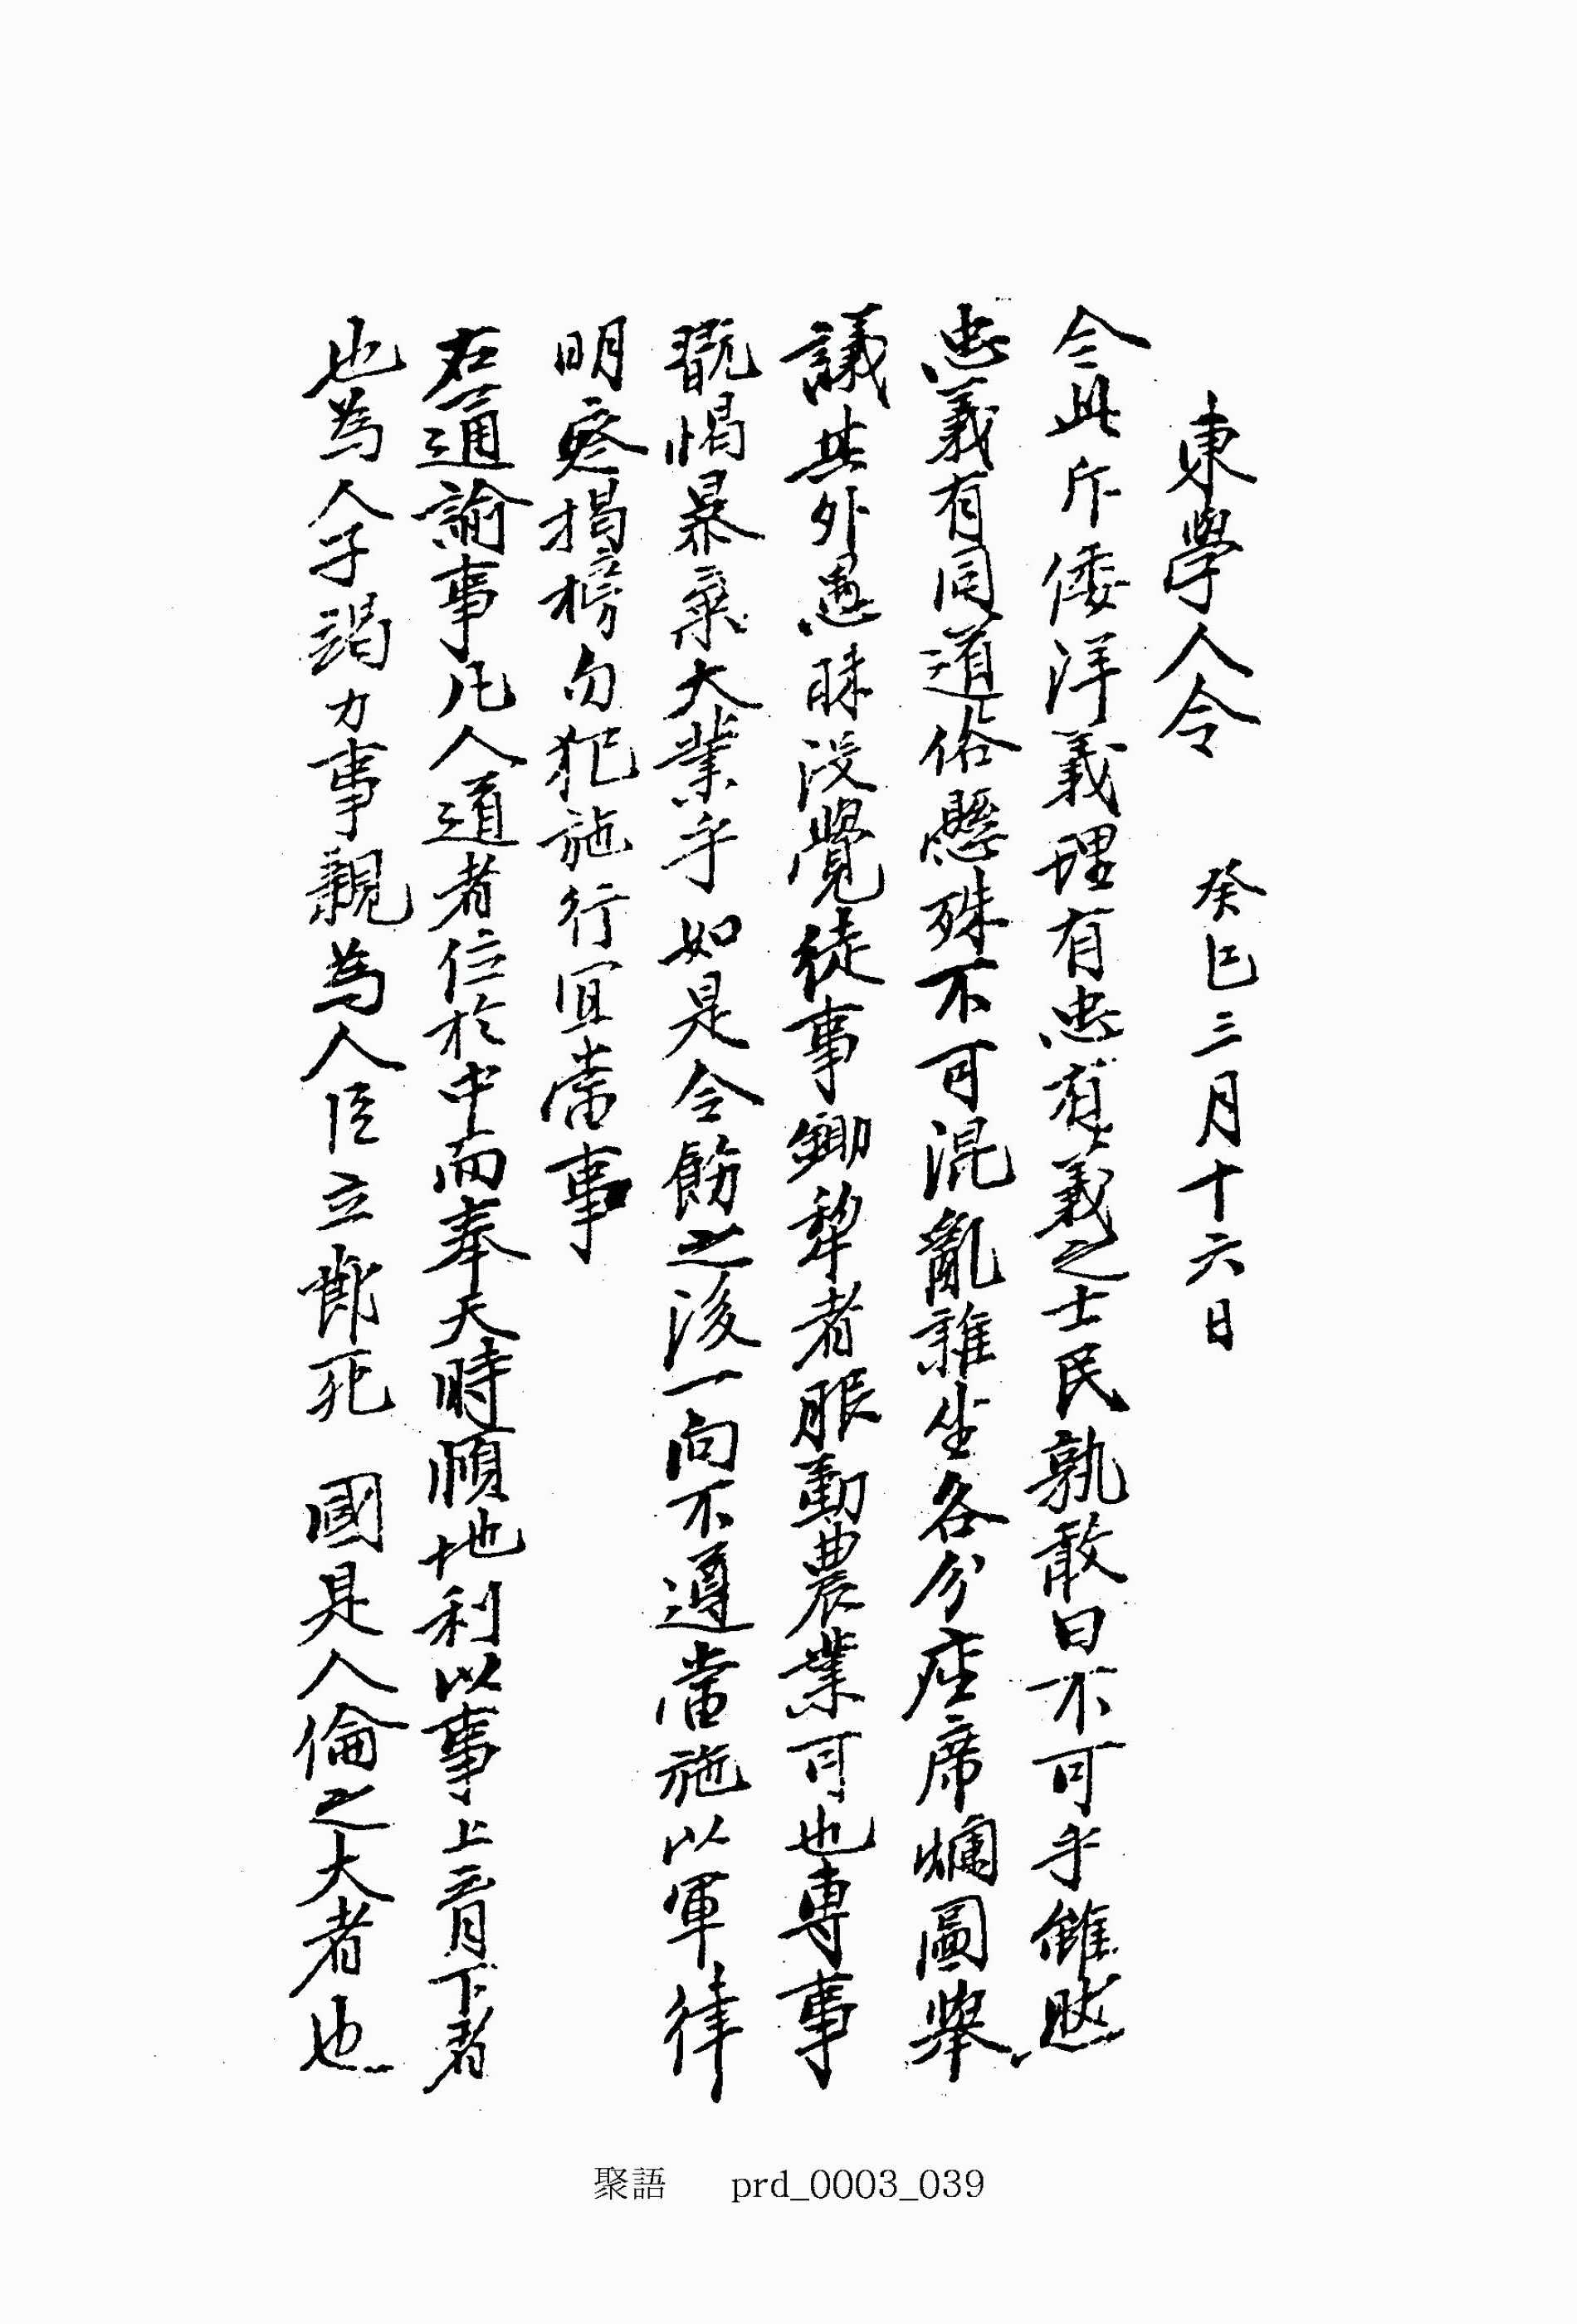 東學人令 癸巳三月十六日
今此斥倭洋義理有忠有義之士民孰敢曰不可乎雖然
忠義有同道俗懸殊不可混亂雜坐各分座席爛圖擧
議其外愚昧沒覺徒事鋤犁者服勤農業可也專事
翫愒暴棄大業乎如是令飭之後一向不遵當施以軍律
明爲揭榜勿犯施行宜當事
右通諭事凡人道者位於中而奉天時順地利以事上育下者
也爲人子竭力事親爲人臣立節死 國是人倫之大者也
聚語 prd_0003_039